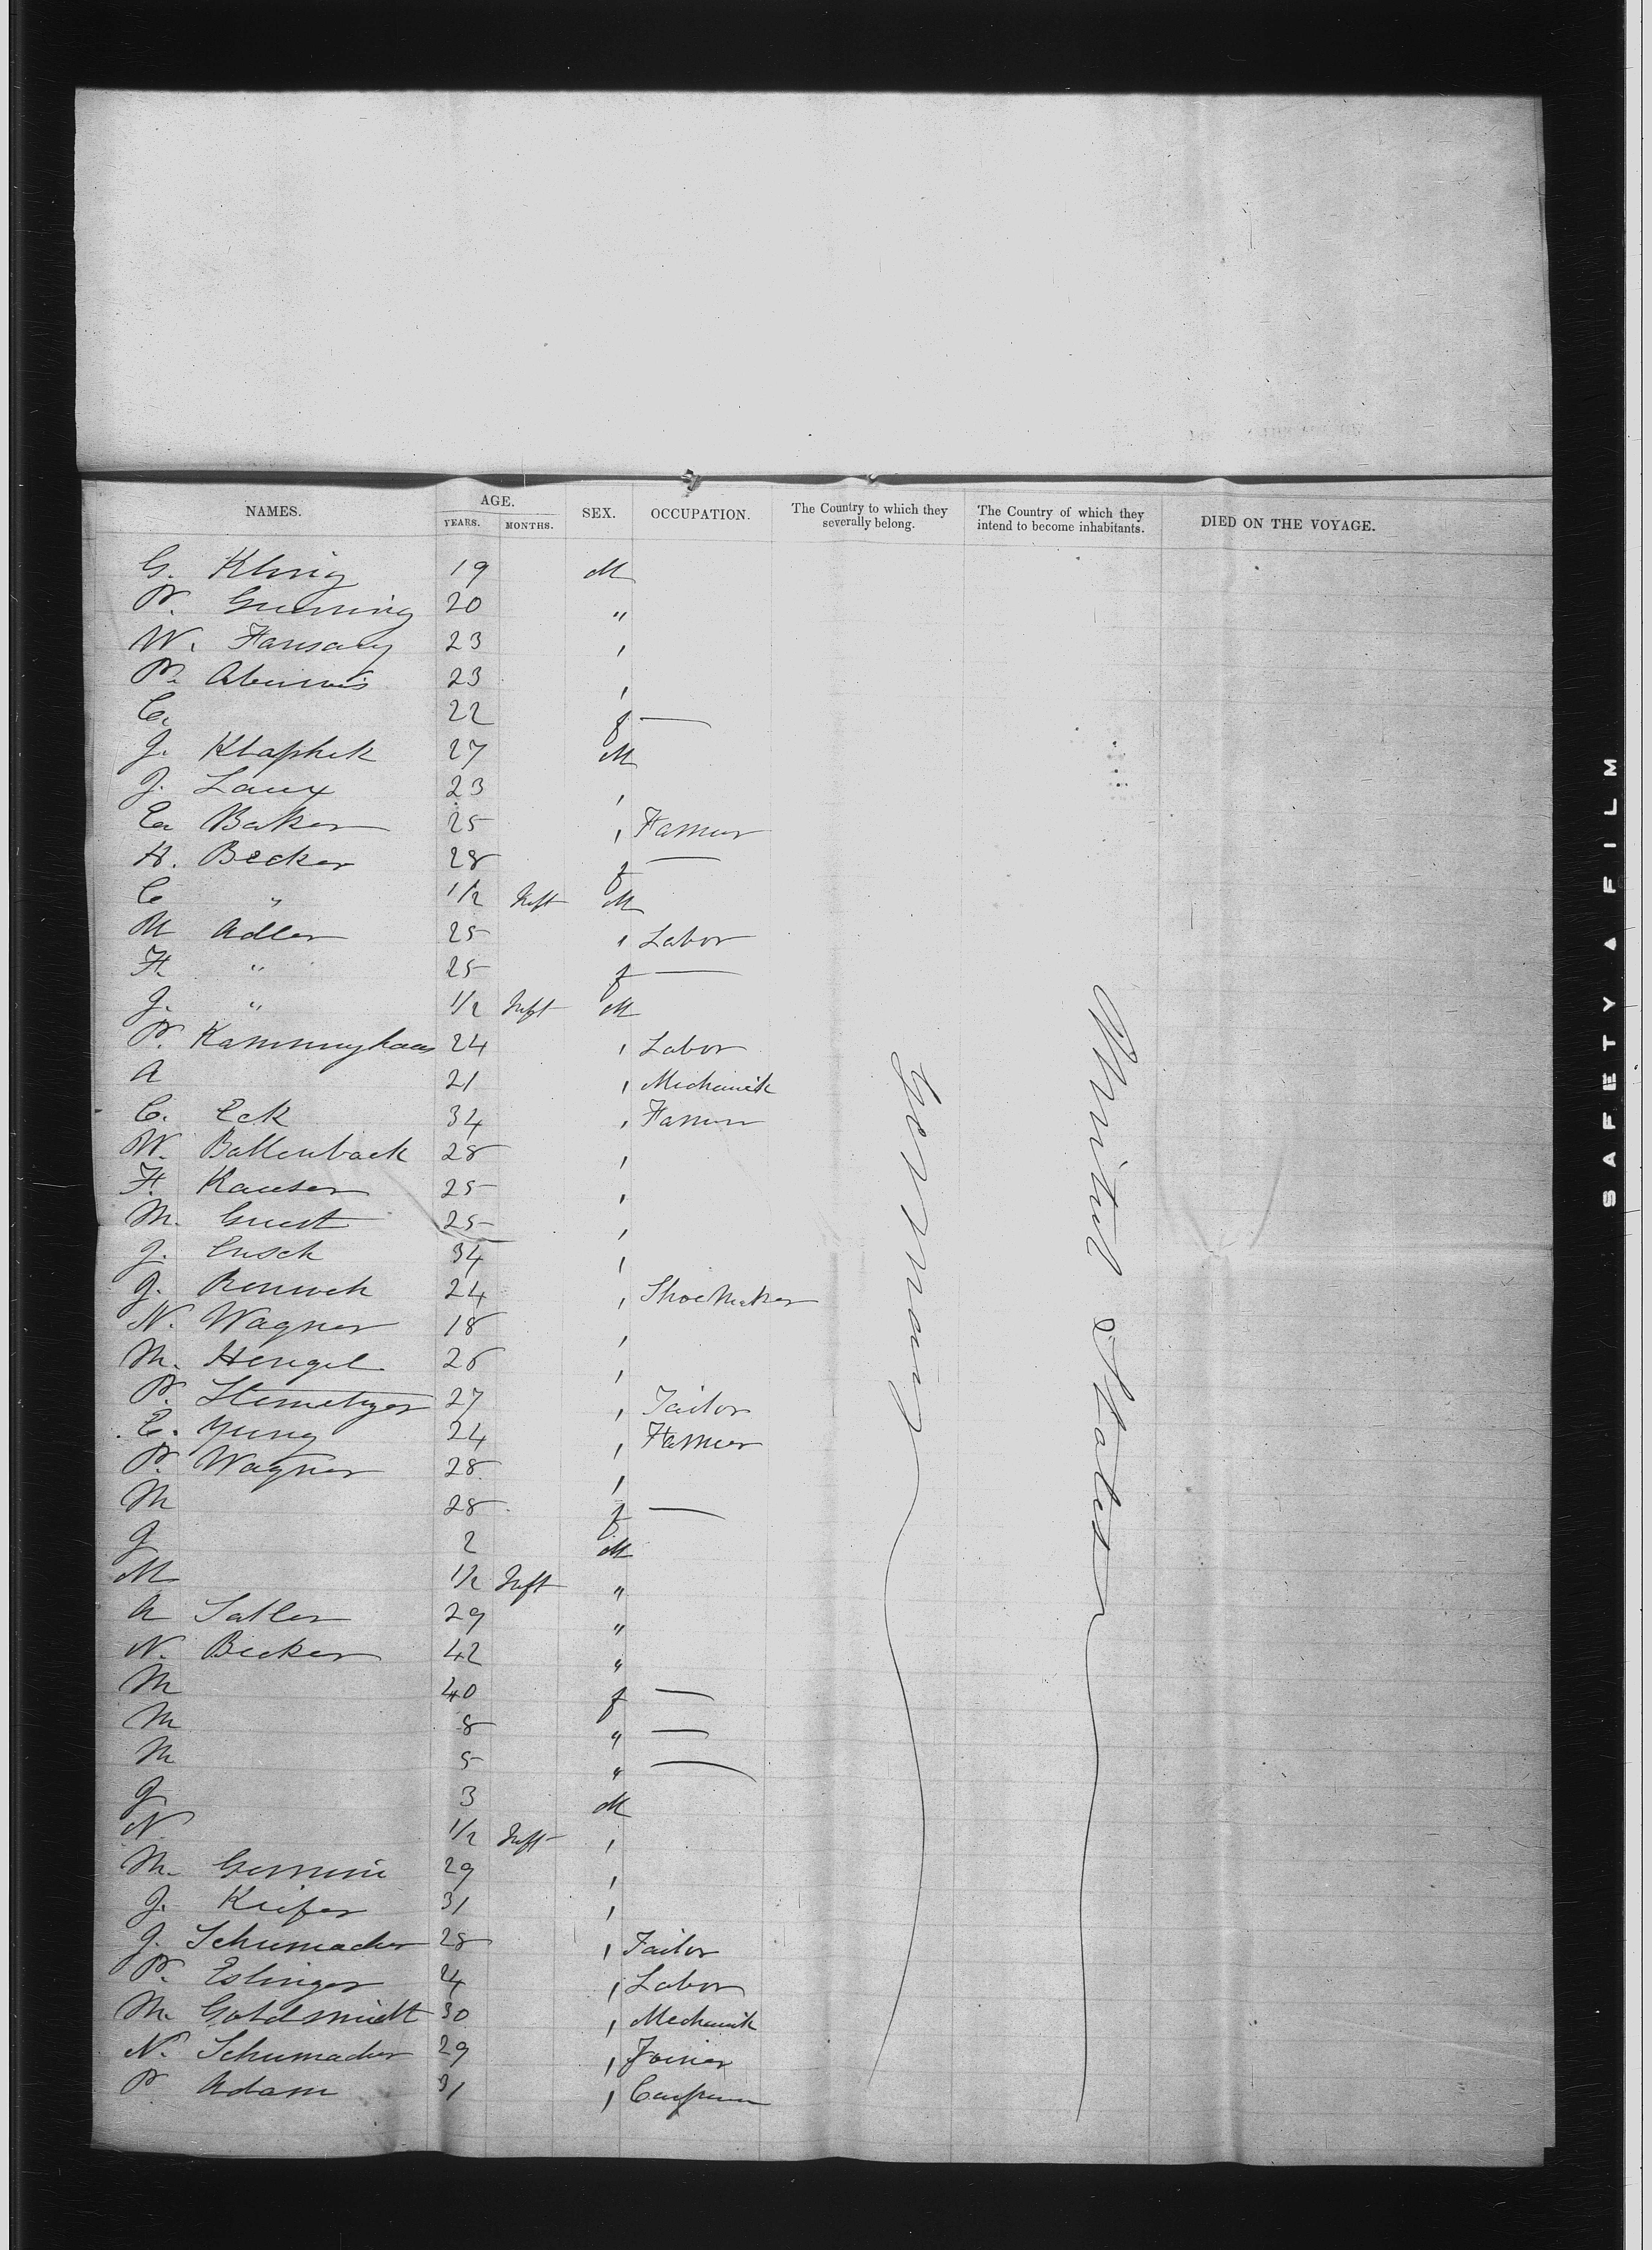 NAMES. AGE. SEX. OCCUPATION. The Country to which they severally belong. The Country of which they intend to become inhabitants. DIED ON THE VOYAGE.
YEARS. MONTHS.
G. Kling 19 M
P. 20 "
W. 23 ,
P. 23 ,
C. 22 f —
J. Klaphek 27 M
J. Laux 23 ,
E. Baker 25 , Farmer
H. Becker 28 f —
C " 1/2 Inft M
M Adler 25 , Labor
F. " 25 f —
J. " 1/2 Inft M
P. Kamminghaus 24 , Labor
A 21 , Mechanik
C. Eck 34 , Farmer
W. Battenback 28 ,
F. Kauser 25 ,
M. Guest 25 ,
J. 34 ,
J. 24 , ShoeMaker
N. Wagner 18 ,
M. Hengel 26 ,
P. Stemetzer 27 , Tailor
E. Yung 24 , Farmer
P. Wagner 28 ,
M 28 f —
J 2 M
M 1/2 Inft "
A Satler 29 "
N. Becker 42 "
M 40 f —
M 8 " —
M 5 " —
J 3 M
N 1/2 Inft ,
M. 29 ,
J. Kiefer 31 ,
J. Schumacher 28 , Tailor
P. Eslinger 24 , Labor
M. Goldsmidt 30 , Mechanik
N. Schumacher 29 , Joiner
P. Adam 31 ,
Germany
United States
SAFETY A FILM